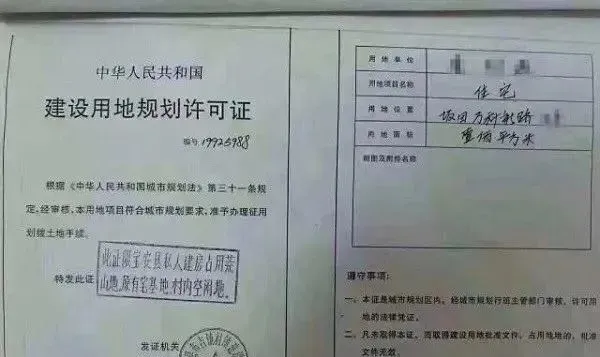 中华人民共和国
建设用地规划许可证
编号
根据《中华人民共和国城市规划法》第三十一条规
定，经审核，本用地项目符合城市规划要求，准予办理征用
划拨土地手续。
此证限宝安县私人建房占用荒
山地、原有宅基地、村内空闲地。
特发此证
发证机关
用地单位
用地项目名称 住宅
用地位置 坂田万科
用地面积 壹佰平方米
附图及附件名称
遵守事项：
一、本证是城市规划区内，经城市规划行政主管部门审核，许可用
地的法律凭证。
二、凡未取得本证，而取得建设用地批准文件、占用地的，批准
文件无效。